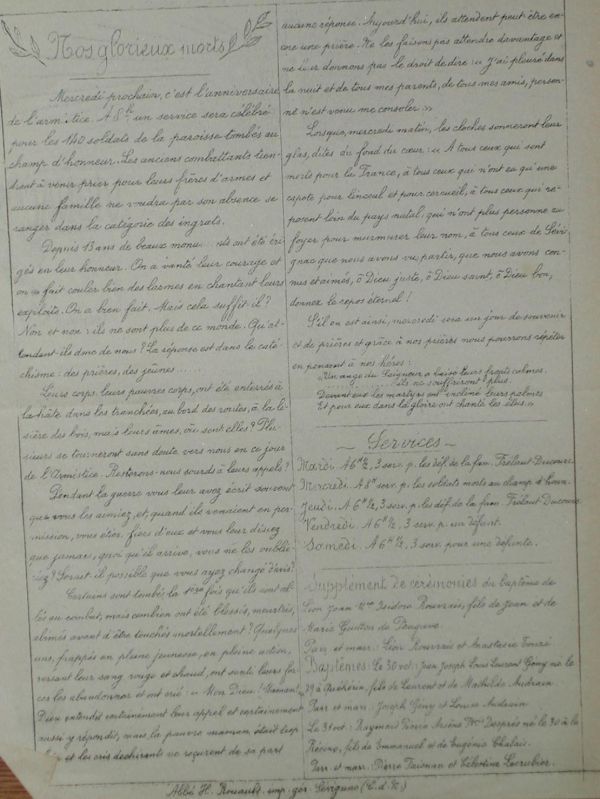 Nos glorieux morts
Mercredi prochain, c'est l'anniversaire
de l'armistice. A 8h un service sera célébré
pour les 140 soldats de la paroisse tombés au
champ d'honneur. Les anciens combattants tien-
dront à venir prier pour leurs frères d'armes et
aucune famille ne voudra par son absence se
ranger dans la catégorie des ingrats.
Depuis 13 ans de beaux monu ont été éri-
gés en leur honneur. On a vanté leur courage et
on a fait couler bien des larmes en chantant leurs
exploits. On a bien fait. Mais cela suffit-il?
Non et non: ils ne sont plus de ce monde. Qu'at-
tendent-ils donc de nous? La réponse est dans le caté-
chisme: des prières, des jeûnes....
Leurs corps, leurs pauvres corps, ont été enterrés à
la hâte dans les tranchées, au bord des routes, à la li-
sière des bois, mais leurs âmes, où sont-elles? Plu-
sieurs se tourneront sans doute vers nous en ce jour
de l'Armistice. Resterons-nous sourds à leurs appels?
Pendant la guerre vous leur avez écrit souvent
que vous les aimiez, et, quand ils venaient en per-
mission, vous étiez fiers d'eux et vous leur disiez
que jamais, quoi qu'il arrive, vous ne les oublie-
riez? Serait-il possible que vous ayez changé d'avis?
Certains sont tombés la 1ère fois qu'ils sont al-
lés au combat, mais combien ont été blessés, meurtris,
abimés avant d'être touchés mortellement? Quelques
uns, frappés en pleine jeunesse, en pleine action,
versant leur sang rouge et chaud, ont senti leurs for-
ces les abandonner et ont crié: « Mon Dieu! Maman!
Dieu entendit certainement leur appel et certainement
aussi y répondit, mais la pauvre maman était trop
et les cris déchirants ne reçurent de sa part
aucune réponse. Aujourd'hui, ils attendent peut-être en-
core une prière. Ne les faisons pas attendre davantage et
ne leur donnons pas le droit de dire: « J'ai pleuré dans
la nuit et de tous mes parents, de tous mes amis, person-
ne n'est venu me consoler. »
Lorsque, mercredi matin, les cloches sonneront leur
glas, dites du fond du cœur: « A tous ceux qui sont
morts pour la France, à tous ceux qui n'ont eu qu'une
capote pour linceul et pour cercueil, à tous ceux qui re-
posent loin du pays natal, qui n'ont plus personne au
foyer pour murmurer leur nom, à tous ceux de Sévi-
gnac que nous avons vu partir, que nous avons con-
nus et aimés, ô Dieu juste, ô Dieu saint, ô Dieu bon,
donnez le repos éternel!
S'il en est ainsi, mercredi sera un jour de souvenir
et de prières et grâce à nos prières nous pourrons répéter
en pensant à nos héros:
« Un ange du Seigneur a baisé leurs fronts calmes.
ils ne souffriront plus.
Devant eux les martyrs ont incliné leurs palmes
Et pour eux dans la gloire ont chanté les élus. »
Services
Mardi. A 6h 1/2, 3 serv. p. les déf. de la fam. Frélaut-Ducoure.
Mercredi. A 8h serv. p. les soldats morts au champ d'honn.
Jeudi. A 6h 1/2, 3 serv. p. les déf. de la fam. Frélaut-Ducoure
Vendredi. A 6h 1/2, 3 serv. p. un défunt.
Samedi. A 6h 1/2, 3 serv. pour une défunte.
Supplément de cérémonies du Baptême de
Léon Jean Isidore Rouvrais, fils de Jean et de
Marie Guitton de
Parr. et marr.: Léon Rouvrais et Anastasie
Baptêmes: Le 30 oct.: Jean Joseph Louis Laurent Gény né le
29 à fils de Laurent et de Mathilde Audrain
Parr. et marr.: Joseph Gény et Louise Audrain
Le 31 oct.: Raymond Pierre Després né le 30 à la
fils de Emmanuel et de Eugénie
Parr. et marr.: Pierre et Célestine
Abbé H. Rouault. imp. gér. Sévignac (C. d. N.)